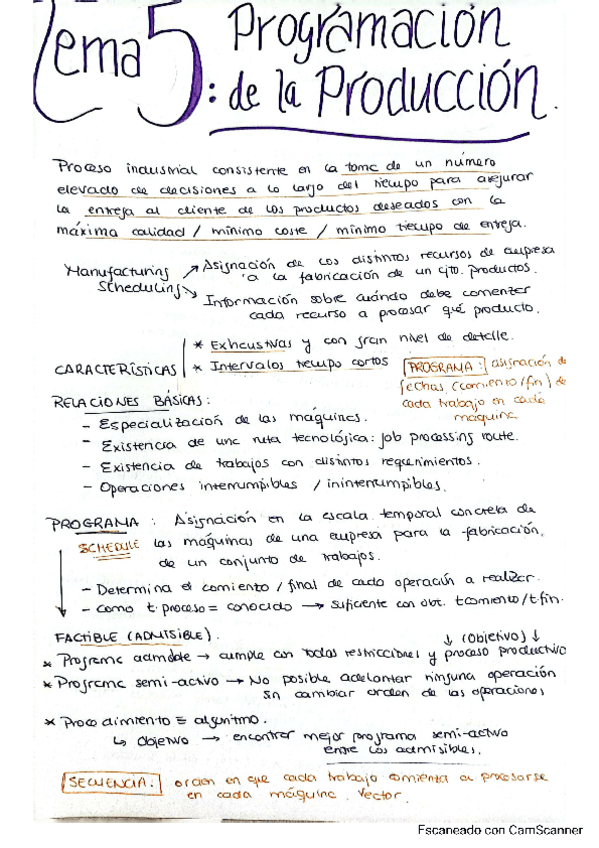 Tema 5: Programación
de la Producción.
Proceso industrial consistente en la toma de un número
elevado de decisiones a lo largo del tiempo para asegurar
la entrega al cliente de los productos deseados con la
máxima calidad / mínimo coste / mínimo tiempo de entrega.
Manufacturing Scheduling
Asignación de los distintos recursos de empresa
a la fabricación de un cjto. productos.
Información sobre cuándo debe comenzar
cada recurso a procesar qué producto.
CARACTERÍSTICAS
* Exhaustivas y con gran nivel de detalle.
* Intervalos tiempo cortos
PROGRAMA: asignación de
fechas (comienzo/fin) de
cada trabajo en cada
máquina
RELACIONES BÁSICAS:
- Especialización de las máquinas.
- Existencia de una ruta tecnológica: job processing route.
- Existencia de trabajos con distintos requerimientos.
- Operaciones interrumpibles / ininterrumpibles.
PROGRAMA: Asignación en la escala temporal concreta de
SCHEDULE las máquinas de una empresa para la fabricación,
de un conjunto de trabajos.
- Determina el comienzo / final de cada operación a realizar.
- Como t. proceso = conocido → suficiente con obt. tcomienzo/t.fin.
FACTIBLE (ADMISIBLE).
↓ (Objetivo) ↓
* Programa admisible → cumple con todas restricciones y proceso productivo
* Programa semi-activo → No posible adelantar ninguna operación
sin cambiar orden de las operaciones
* Procedimiento ≡ algoritmo.
↳ objetivo → encontrar mejor programa semi-activo
entre los admisibles.
SECUENCIA: orden en que cada trabajo comienza a procesarse
en cada máquina. Vector.
Escaneado con CamScanner